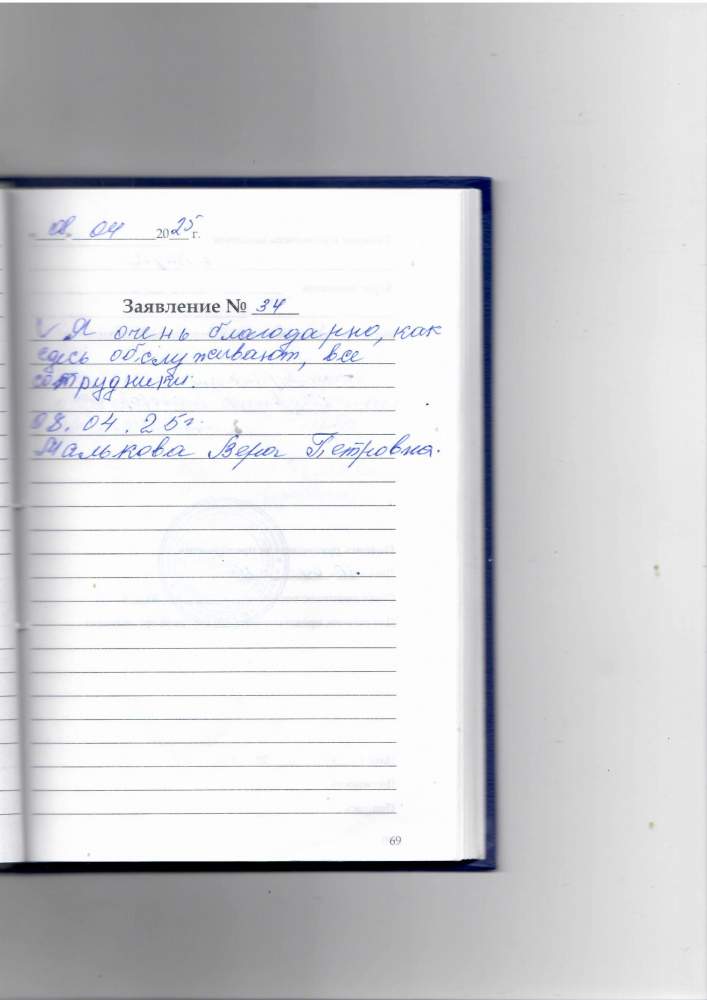 08. 04 2025 г.
Заявление № 34
Я очень благодарно, как
здесь обслуживают, все
сотрудники.
08.04.25г.
Малькова Вера Петровна.
69